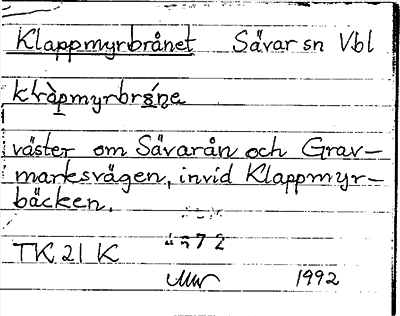 Klappmyrbrånet Sävar sn Vbl
klàpmyrbrǻne
väster om Sävarån och Grav-
marksvägen, invid Klappmyr-
bäcken.
TK 21 K
1992